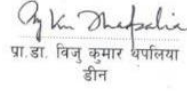 प्रा.डा. विजु कुमार थपलिया
डीन